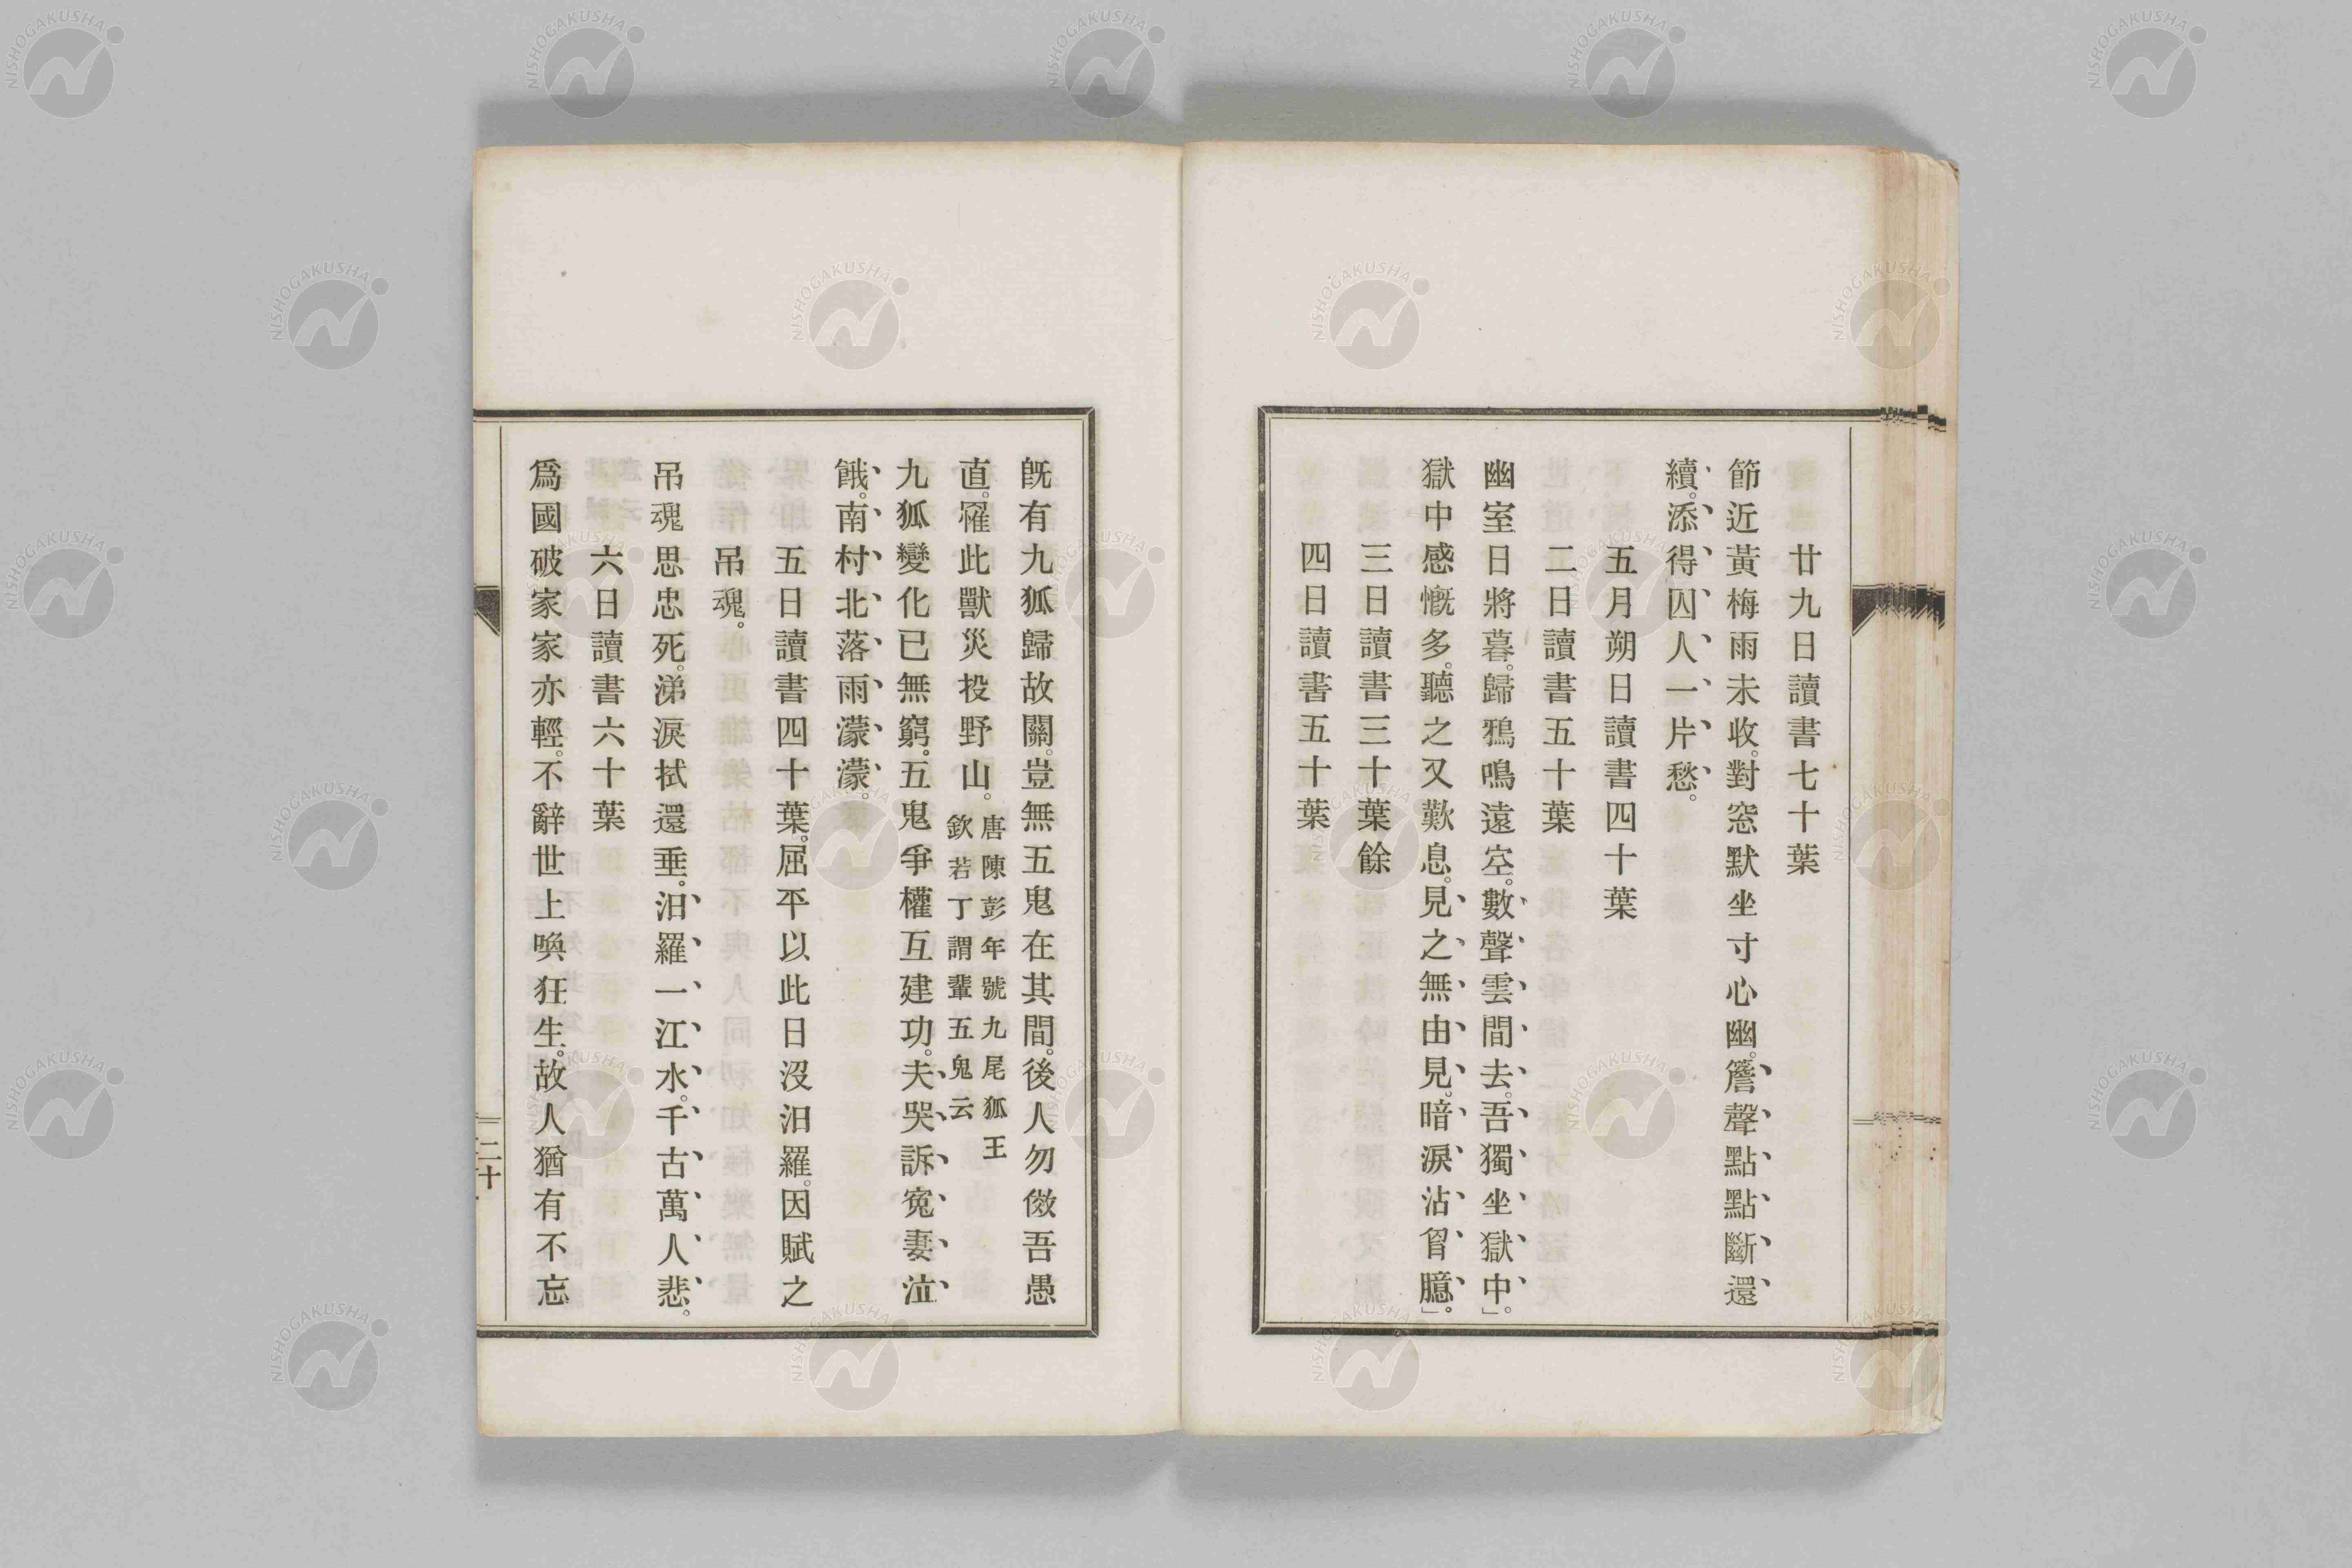 廿九日讀書七十葉
節近黃梅雨未收。對窓默坐寸心幽。簷聲點點斷還
續。添得囚人一片愁。
五月朔日讀書四十葉
二日讀書五十葉
幽室日將暮。歸鴉鳴遠空。數聲雲間去。吾獨坐獄中。」
獄中感慨多。聽之又歎息。見之無由見。暗淚沾胷臆。」
三日讀書三十葉餘
四日讀書五十葉
既有九狐歸故關。豈無五鬼在其間。後人勿傚吾愚
直。罹此獸災投野山。唐陳彭年號九尾狐王
欽若丁謂輩五鬼云
九狐變化已無窮。五鬼爭權互建功。夫哭訴寃妻泣
餓。南村北落雨濛濛。
五日讀書四十葉。屈平以此日沒汨羅。因賦之
吊魂。
吊魂思忠死。涕淚拭還垂。汨羅一江水。千古萬人悲。
六日讀書六十葉
爲國破家家亦輕。不辭世上喚狂生。故人猶有不忘
二十
NISHOGAKUSHA